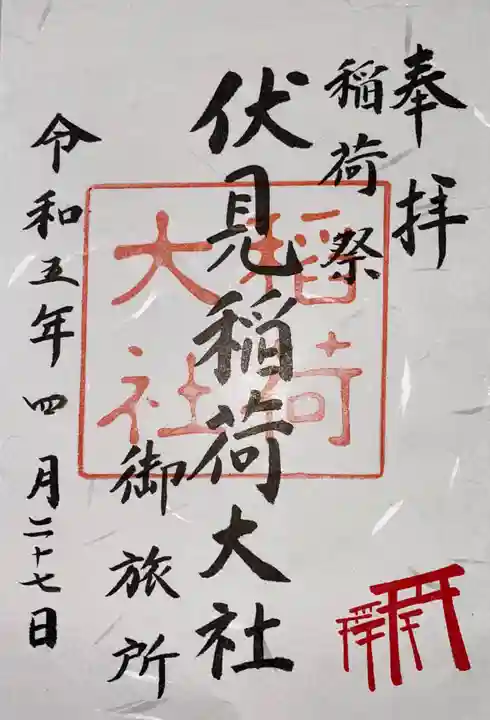 奉拝
稲荷祭
伏見稲荷大社
稲荷
大社
御旅所
令和五年四月二十七日